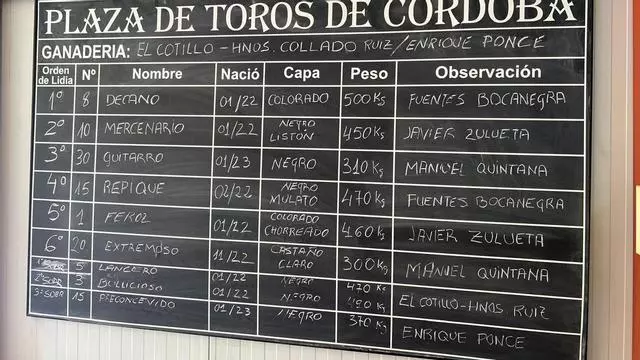 PLAZA DE TOROS DE CORDOBA
GANADERIA: EL COTILLO - HNOS. COLLADO RUIZ / ENRIQUE PONCE
Orden de Lidia Nº Nombre Nació Capa Peso Observación
1º 8 DECANO 01/22 COLORADO 500 Kg FUENTES BOCANEGRA
2º 10 MERCENARIO 01/22 NEGRO LISTÓN 450 Kg JAVIER ZULUETA
3º 30 GUITARRO 01/23 NEGRO 310 Kg MANUEL QUINTANA
4º 15 REPIQUE 02/22 NEGRO MULATO 470 Kg FUENTES BOCANEGRA
5º 1 FEROZ 01/22 COLORADO CHORREADO 460 Kg JAVIER ZULUETA
6º 20 EXTREMOSO 11/22 CASTAÑO CLARO 300 Kg MANUEL QUINTANA
1º SOBR 5 LANCERO 01/22 NEGRO 470 Kg EL COTILLO - HNOS. RUIZ
2º SOBR 3 BULLICIOSO 01/22 NEGRO Kg
3º SOBR 15 PRECONCEVIDO 01/23 NEGRO 370 Kg ENRIQUE PONCE